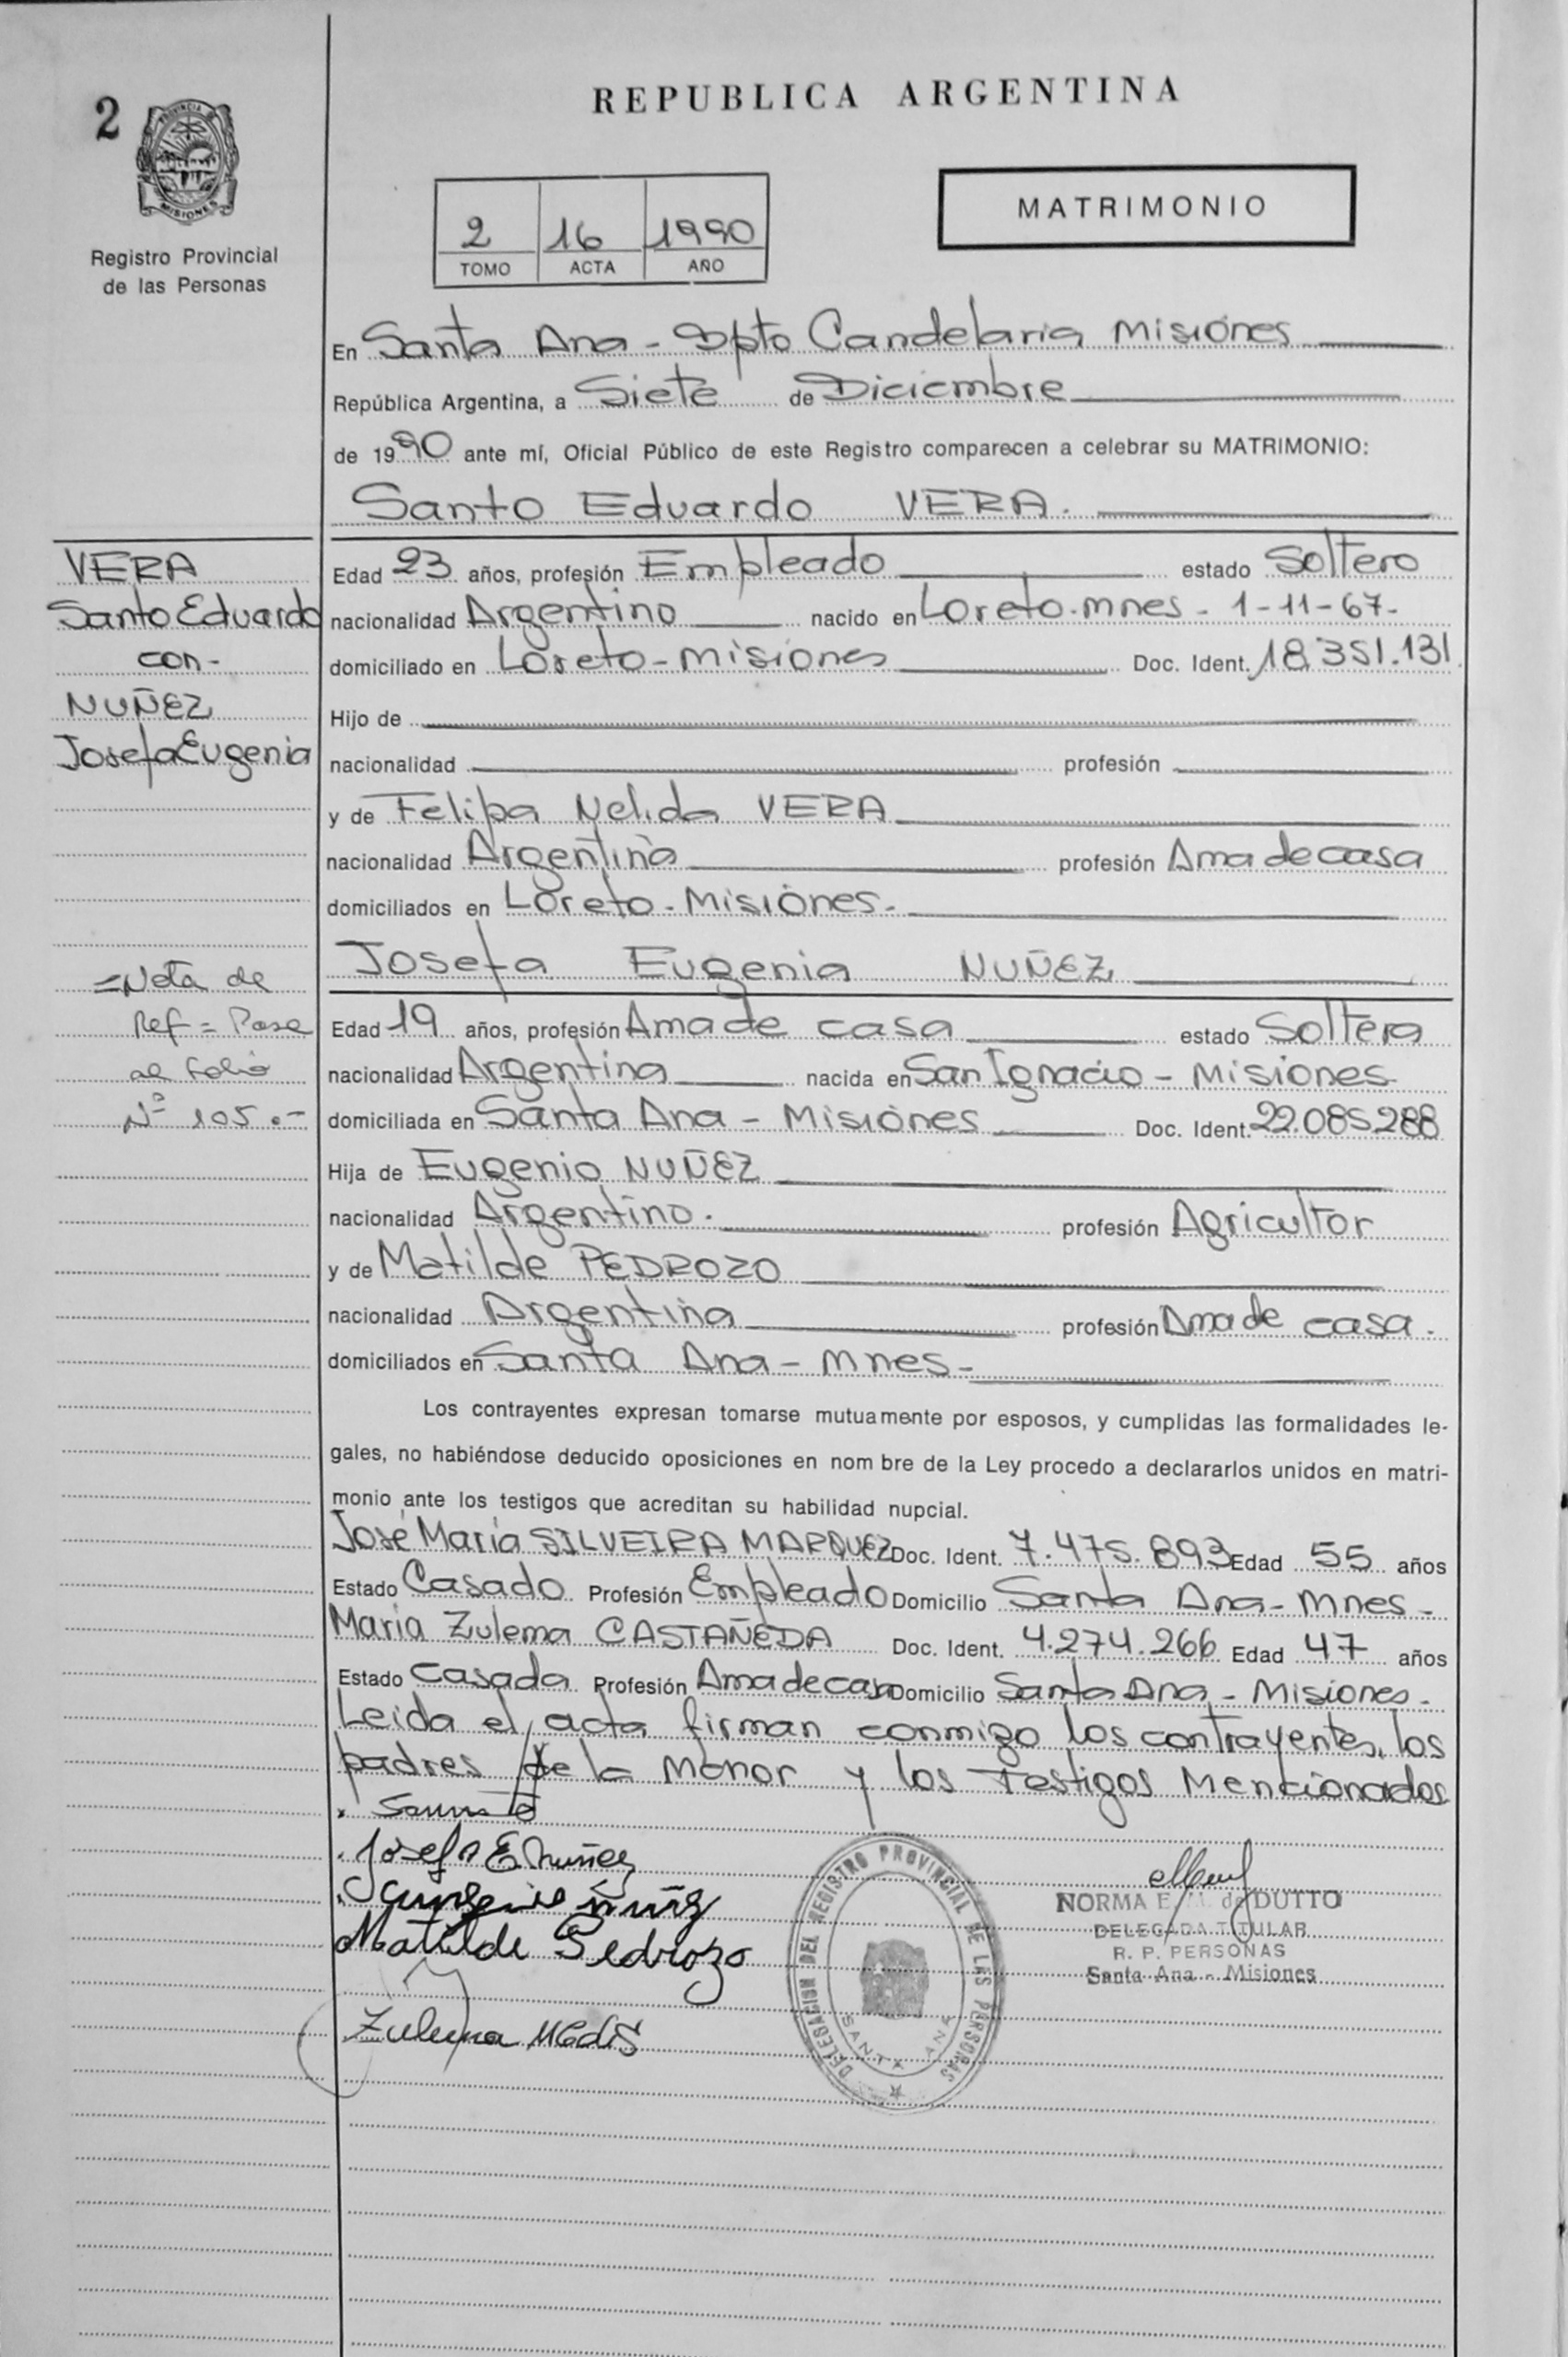 REPUBLICA ARGENTINA
2
PROVINCIA
MISIONES
Registro Provincial
de las Personas
2 16 1990
TOMO ACTA AÑO
MATRIMONIO
En Santa Ana - Dpto Candelaria Misiones
República Argentina, a Siete de Diciembre
de 1990 ante mí, Oficial Público de este Registro comparecen a celebrar su MATRIMONIO:
Santo Eduardo VERA.
VERA
Santo Eduardo
con-
NUÑEZ
Josefa Eugenia
Edad 23 años, profesión Empleado estado Soltero
nacionalidad Argentino nacido en Loreto.mnes - 1-11-67-
domiciliado en Loreto-misiones Doc. Ident. 18.351.131
Hijo de
nacionalidad profesión
y de Felipa Nelida VERA
nacionalidad Argentina profesión Ama de casa
domiciliados en Loreto-Misiones-
Josefa Eugenia NUÑEZ
=Nota de
Ref = Pase
al folio
Nº 105.-
Edad 19 años, profesión Ama de casa estado Soltera
nacionalidad Argentina nacida en San Ignacio - Misiones
domiciliada en Santa Ana - Misiones Doc. Ident. 22.085288
Hija de Eugenio NUÑEZ
nacionalidad Argentino. profesión Agricultor
y de Matilde PEDROZO
nacionalidad Argentina profesión Ama de casa.
domiciliados en Santa Ana - Mnes-
Los contrayentes expresan tomarse mutuamente por esposos, y cumplidas las formalidades le-
gales, no habiéndose deducido oposiciones en nom bre de la Ley procedo a declararlos unidos en matri-
monio ante los testigos que acreditan su habilidad nupcial.
José María SILVEIRA MARQUEZ Doc. Ident. 7.475.893 Edad 55 años
Estado Casado Profesión Empleado Domicilio Santa Ana - Mnes-
Maria Zulema CASTAÑEDA Doc. Ident. 4.274.266 Edad 47 años
Estado Casada Profesión Ama de casa Domicilio Santa Ana - Misiones-
Leida el acta firman conmigo los contrayentes, los
padres de la Menor y los Testigos Mencionados
Josefa E Nuñez
Matilde Pedrozo
Zulema
DELEGACION DEL REGISTRO PROVINCIAL DE LAS PERSONAS
SANTA ANA
NORMA E. M. de DUTTO
DELEGADA TITULAR
R. P. PERSONAS
Santa Ana - Misiones